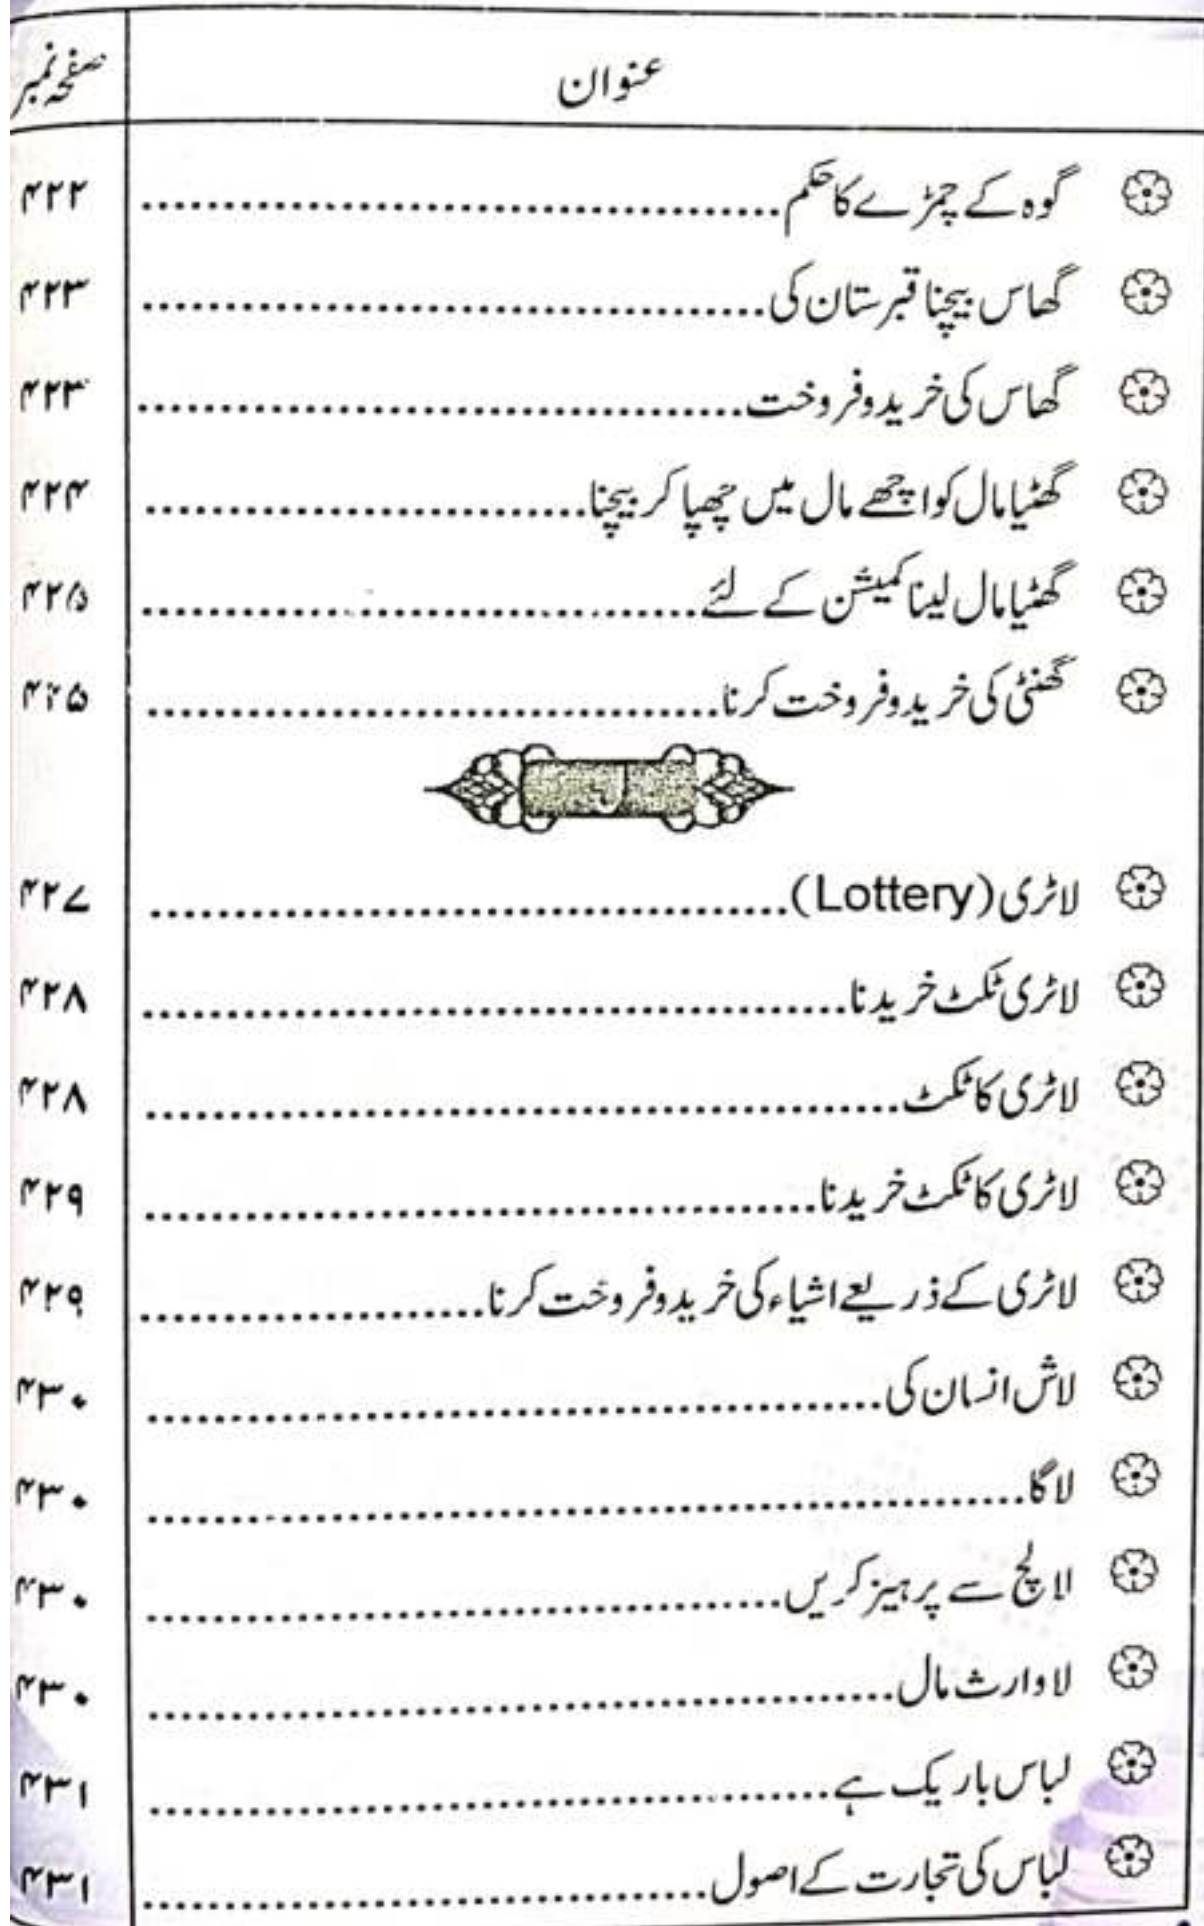 عنوان صفحہ نمبر
گوہ کے چمڑے کا حکم ................ ۴۲۲
گھاس بیچنا قبرستان کی ................ ۴۲۳
گھاس کی خرید و فروخت ................ ۴۲۳
گھٹیا مال کو اچھے مال میں چُھپا کر بیچنا ................ ۴۲۴
گھٹیا مال لینا کمیشن کے لئے ................ ۴۲۵
گھنٹی کی خرید و فروخت کرنا ................ ۴۲۵
ل
لاٹری (Lottery) ................ ۴۲۷
لاٹری ٹکٹ خریدنا ................ ۴۲۸
لاٹری کا ٹکٹ ................ ۴۲۸
لاٹری کا ٹکٹ خریدنا ................ ۴۲۹
لاٹری کے ذریعے اشیاء کی خرید و فروخت کرنا ................ ۴۲۹
لاش انسان کی ................ ۴۳۰
لاگا ................ ۴۳۰
لالچ سے پرہیز کریں ................ ۴۳۰
لاوارث مال ................ ۴۳۰
لباس باریک ہے ................ ۴۳۱
لباس کی تجارت کے اصول ................ ۴۳۱